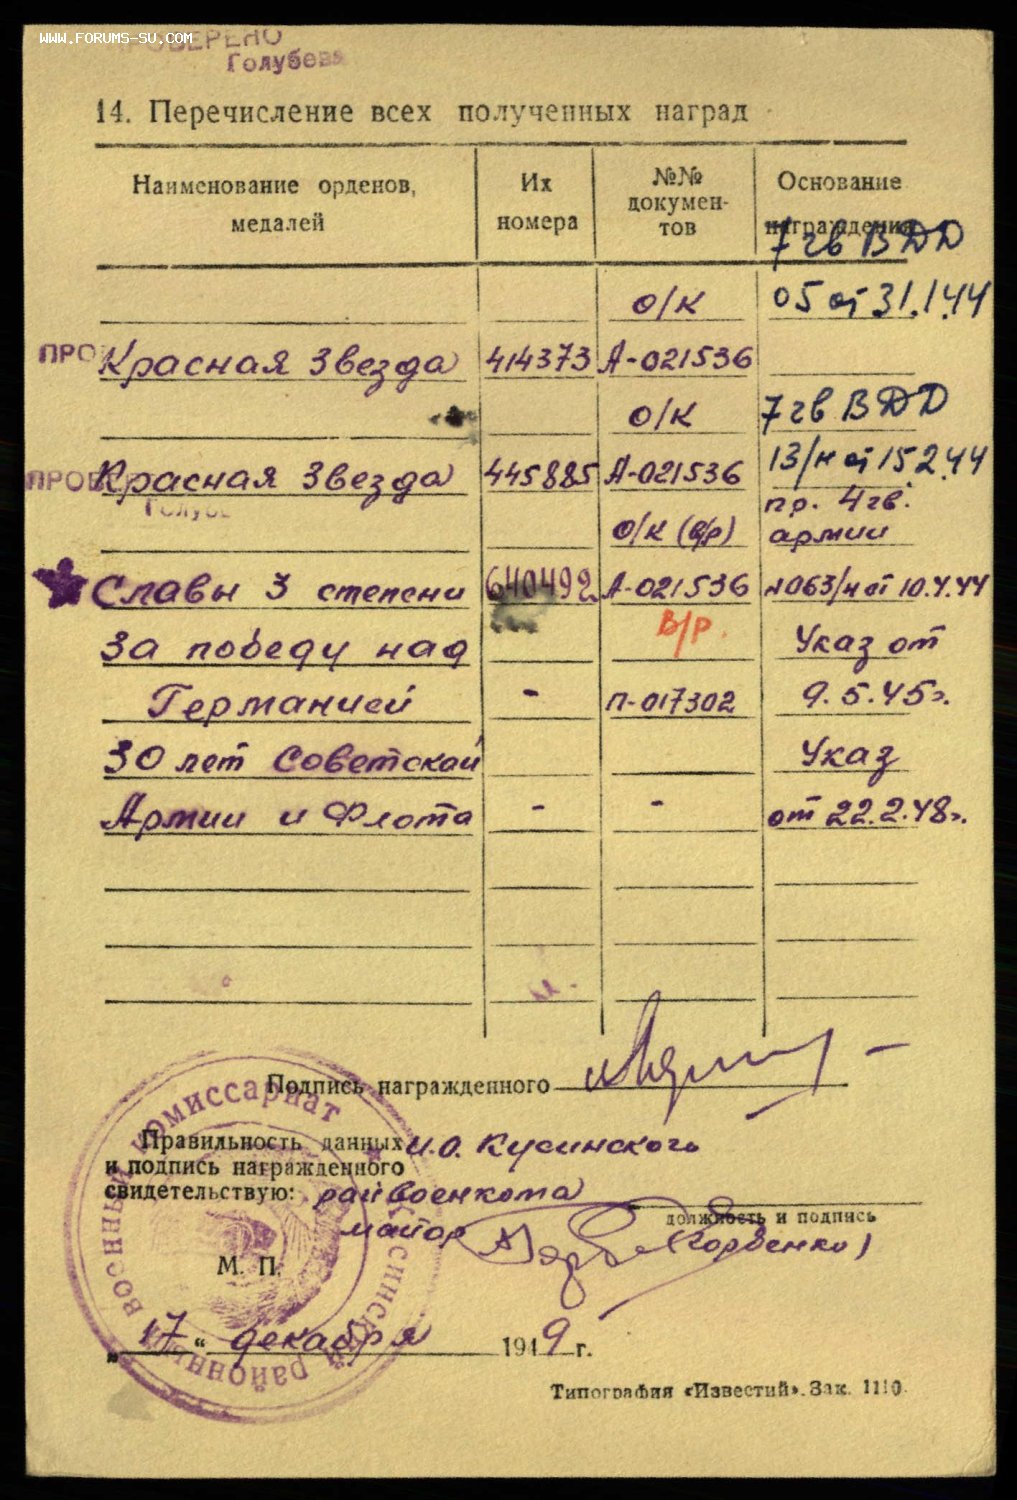 WWW.FORUMS-SU.COM
ПРОВЕРЕНО
Голубева
14. Перечисление всех полученных наград
Наименование орденов, медалей
Их номера
№№ докумен-тов
Основание награждения
7 гв ВДД
о/к 05 от 31.1.44
ПРО Красная Звезда 414373 А-021536
о/к 7 гв ВДД
ПРОВЕ Красная Звезда 445885 А-021536 13/н от 15.2.44
Голубе
пр. 4 гв.
о/к (в/р) армии
Славы 3 степени 640492 А-021536 №063/н от 10.4.44
За победу над В/Р. Указ от
Германией - П-017302 9.5.45г.
30 лет Советской Указ
Армии и Флота - - от 22.2.48г.
Подпись награжденного
Правильность данных и.о. Кусинского
и подпись награжденного
свидетельствую: райвоенкома
должность и подпись
майор (Горбенко)
М. П.
„17“ декабря 1949 г.
районный военный комиссариат
Типография «Известий». Зак. 1110.